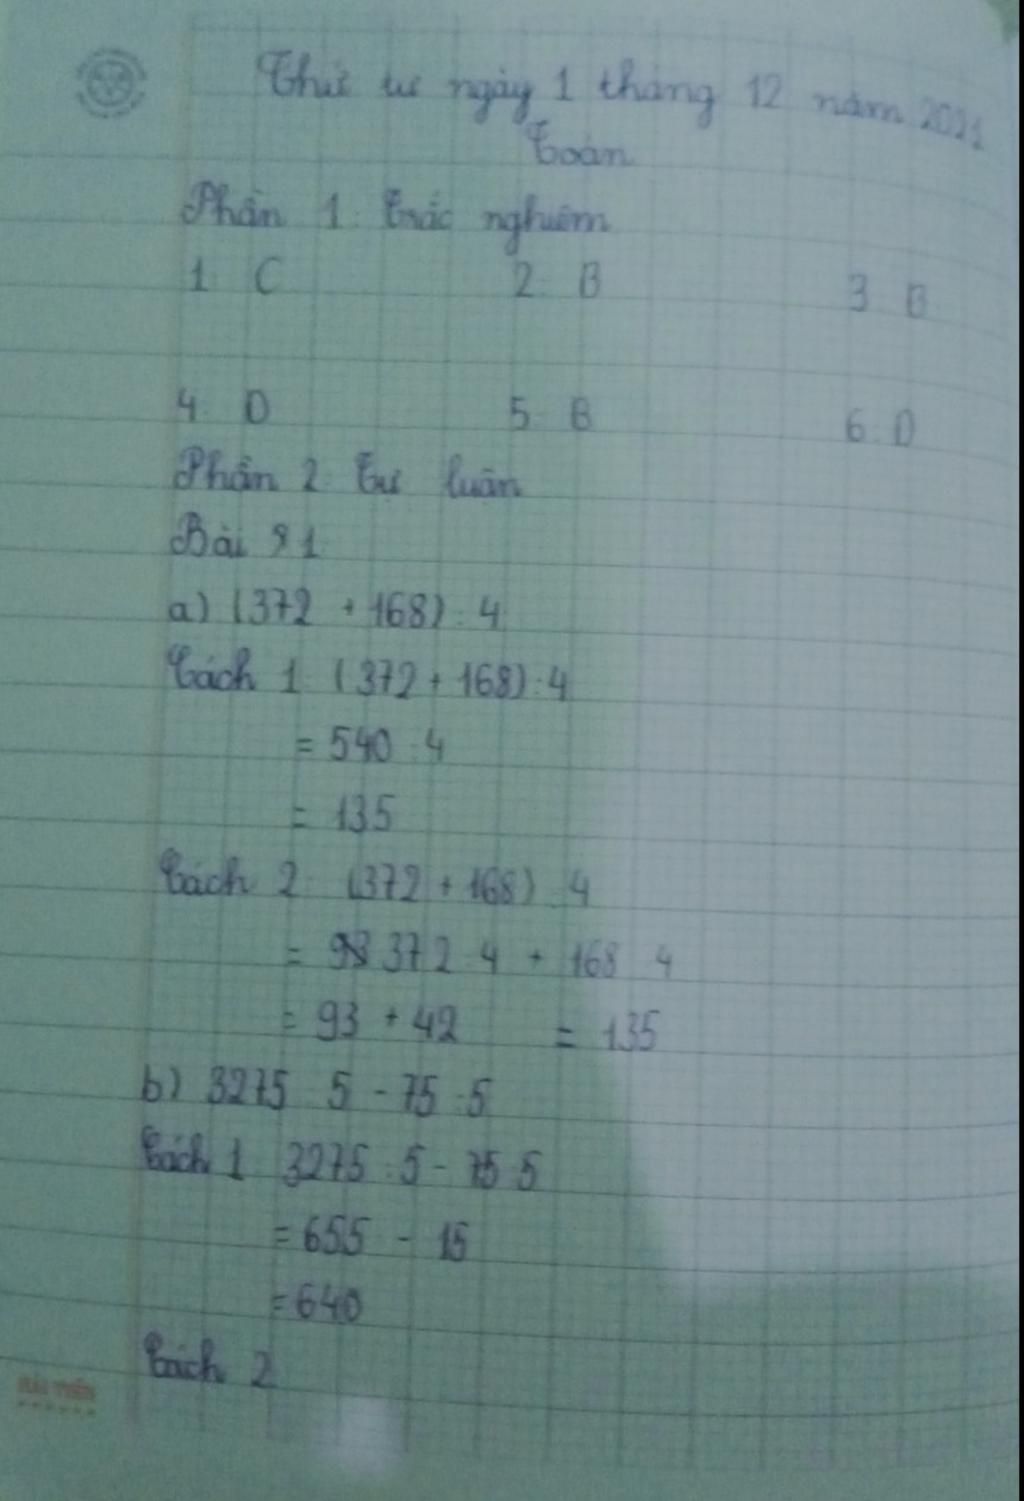 Thứ tư ngày 1 tháng 12 năm 2021
Toán
Phần 1: Trắc nghiệm
1. C 2. B 3. B
4. D 5. B 6. D
Phần 2: Tự luận
Bài 1
a) (372 + 168) : 4
Cách 1: (372 + 168) : 4
= 540 : 4
= 135
Cách 2: (372 + 168) : 4
= 372 : 4 + 168 : 4
= 93 + 42 = 135
b) 3275 : 5 - 75 : 5
Cách 1: 3275 : 5 - 75 : 5
= 655 - 15
= 640
Cách 2
HẢI TIẾN